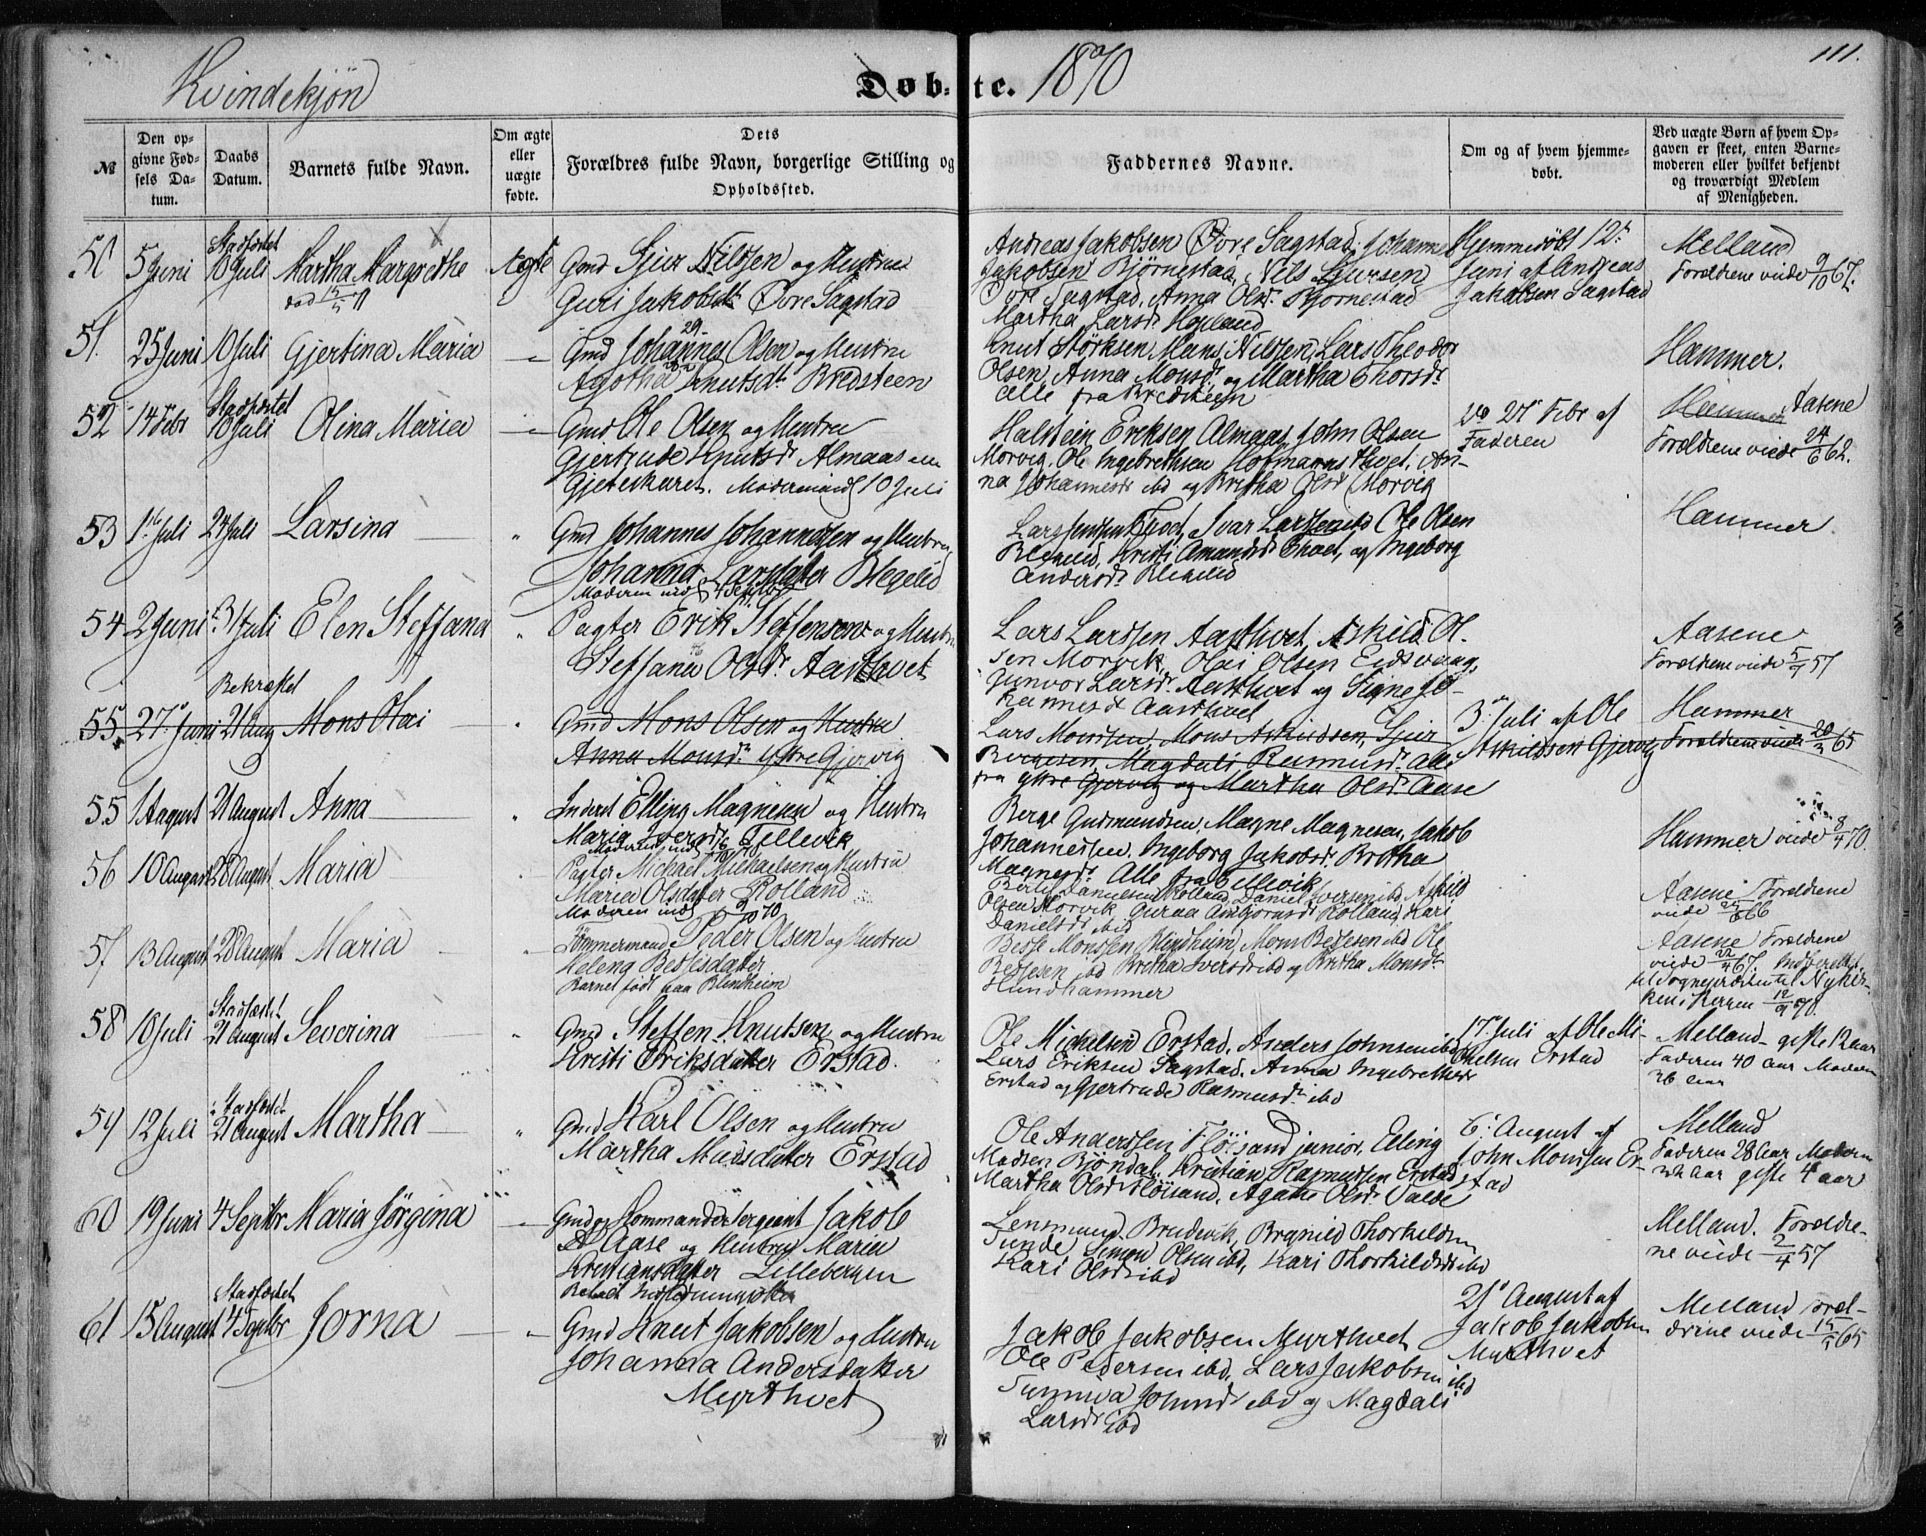 Kvindekjøn
Døbte. 1870
111.
№
Den opgivne Fødsels Datum.
Daabs Datum.
Barnets fulde Navn.
Om ægte eller uægte fødte.
Dets Forældres fulde Navn, borgerlige Stilling og Opholdssted.
Faddernes Navne.
Om og af hvem hjemmedøbt.
Ved uægte Børn af hvem Opgaven er skeet, enten Barnemoderen eller hvilket bekjendt og troværdigt Medlem af Menigheden.
50 5 Juni Stadfæstet 10 Juli Martha Margrethe Ægte
Gmd Sjur Nilssen og Hustru
Guri Jakobsdt Øvre Sagstad
Andreas Jakobsen Øvre Sagstad, Johannes
Jakobsen Bjørnestad, Nils Sjursen
Øvre Sagstad, Anna Olsdr Bjørnestad
Martha Larsdr Hopland
Hjemmedøbt 12te
Juni af Andreas
Jakobsen Sagstad
Melland
Forældrene viede 9/10 67.
51. 25 Juni 10 Juli Gjertina Maria
Gmd Johannes Olsen og Hustru
Agotha Knutsdt Bredsteen
Knut Størksen, Mons Nilssen, Lars Theodor
Olsen, Anna Monsdr og Martha Thorsdr
alle fra Bredsteen
Hammer.
52 14 Febr Stadfæstet 10 Juli Olina Maria
Gmd Ole Olsen og Hustru
Gjertrude Knutsdr Almaas
Moder indl 10 Juli
Halstein Eriksen Almaas, John Olsen
Morvig, Ole Ingebrethsen Hofmanns thvet, An-
na Johannesdr ibd og Britha Olsdr Morvig
27 Febr af
Faderen
Hammer Aasene
Forældrene viede 24/6 62.
53 1 Juli 24 Juli Larsina
Gmd Johannes Johannessen og Hustru
Johanna Larsdatter Blegelid
Ivar Larssen ibd Ole Olsen
Blegelid, Kristi Amundsdr Thvet, og Ingeborg
Andersdr Blegelid
Hammer
54 2 Juni 31 Juli Elen Steffana
Pagter Erik Steffensen og Hustru
Steffana Olsdr Aasthvet
Lars Larssen Aasthvet, Askild Ol-
sen Morvik, Olai Olsen Eidsvaag,
Gunvor Larsdr Aasthvet og Signe Jo-
hannesdr Aasthvet
Aasene
Forældrene viede 5/7 57
55. 27 Juni Bekræftet 21 Aug Mons Olai
Gmd Mons Olsen og Hustru
Anna Monsdr Ytre Gjervig
Lars Monssen, Mons Askildsen, Sjur
Børgesen, Magdali Rasmusdr alle
fra ytre Gjervig og Martha Olsdr Aase
3 Juli af Ole
Askildssen Gjervig
Hammer
Forældrene viede 20/3 65
55 1 August 21 August Anna
Inderst Elling Magnesen og Hustru
Maria Iversdr Tellevik
Berge Gudmundsen, Magne Magnesen, Jakob
Johannessen, Ingeborg Jakobsdr Britha
Magnesdr Alle fra Tellevik
Hammer viede 8/4 70.
56 10 August 28 August Maria
Pagter Michael Michaelsen og Hustru
Maria Olsdatter Rolland
Moderen indl 9/10 70
Danielsen Rolland, Daniel Iversen ibd, Askild
Olsen Morvik, Rolland, Kari
Danielsdr ibd
Aasene Forældrene
viede 24/6 66
57 13 August 28 August Maria
Tømmermand Peder Olsen og Hustru
Helena Bessesdatter
Barnet født paa Blindheim
Besse Monssen Blindheim, Mons Bessesen ibd Ole
Bessesen ibd Britha Iversdr ibd og Britha Monsdr
Hundhammer
Aasene Forældrene
viede 22/4 67.
58 10 Juli Stadfæstet 21 August Severina
Gmd Steffen Knutsen og Hustru
Kristi Eriksdatter Erstad.
Ole Mickelsen Erstad, Anders Johnsen ibd
Lars Eriksen Sagstad, Anna Ingebrethsdr
Erstad og Gjertrude Rasmusdr ibd
17 Juli af Ole Mi-
chelsen Erstad
Melland - gifte 12 aar
Faderen 40 aar Moderen
36 Aar
59 12 Juli Stadfæstet 21 August Martha
Gmd Karl Olsen og Hustru
Martha Madsdatter Erstad
Ole Anderssen Fløisand junior, Elling
Madsen Bjøndal, Kristian Rasmussen Erstad
Martha Olsdr Fløisand, Agathe Olsdr Valde
6 August af
John Monssen Er-
stad
Melland
Faderen 28 Aar Moderen
32 Aar gifte 4 aar
60 19 Juni 4 Septbr Maria Jörgina
Gmd og Kommandersergeant Jakob
Aase og Hustru Maria
Kristiansdatter Lillebergen
Lensmand Brudevik, Brynild Thorkildsen
Tunde, Simon Olsen ibd, Kari Thorkildsdr ibd
Kari Olsdr ibd
Melland. Forældre-
ne viede 2/4 57
61 15 August Stadfæstet 4 Septbr Jorna
Gmd Knut Jakobsen og Hustru
Johanna Andersdatter
Myrthvet
Jakob Jakobsen Myrthvet
Ole Pedersen ibd, Lars Jakobsen ibd
Sunniva Johnsdr ibd og Magdali
Larsdr ibd
21 August af
Jakob Jakobsen
Myrthvet
Melland Foræl-
drene viede 15/5 65